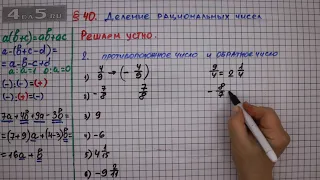 4.5.ru
§ 40. Деление рациональных чисел
Решаем устно.
a(b+c)=ab+ac
a-(b+c-d)=
a-b-c+d
a:a=1 0:a=0
(-):(-)=(+)
(-):(+)=(-)
7a+4b+9a-3b=
=(7+9)a+(4-3)b=
=16a+b
2. противоположное число и обратное число
1) 4/9 → (- 4/9) 9/4 = 2 1/4
2) - 7/8 7/8 - 8/7
3) 9
4) -6